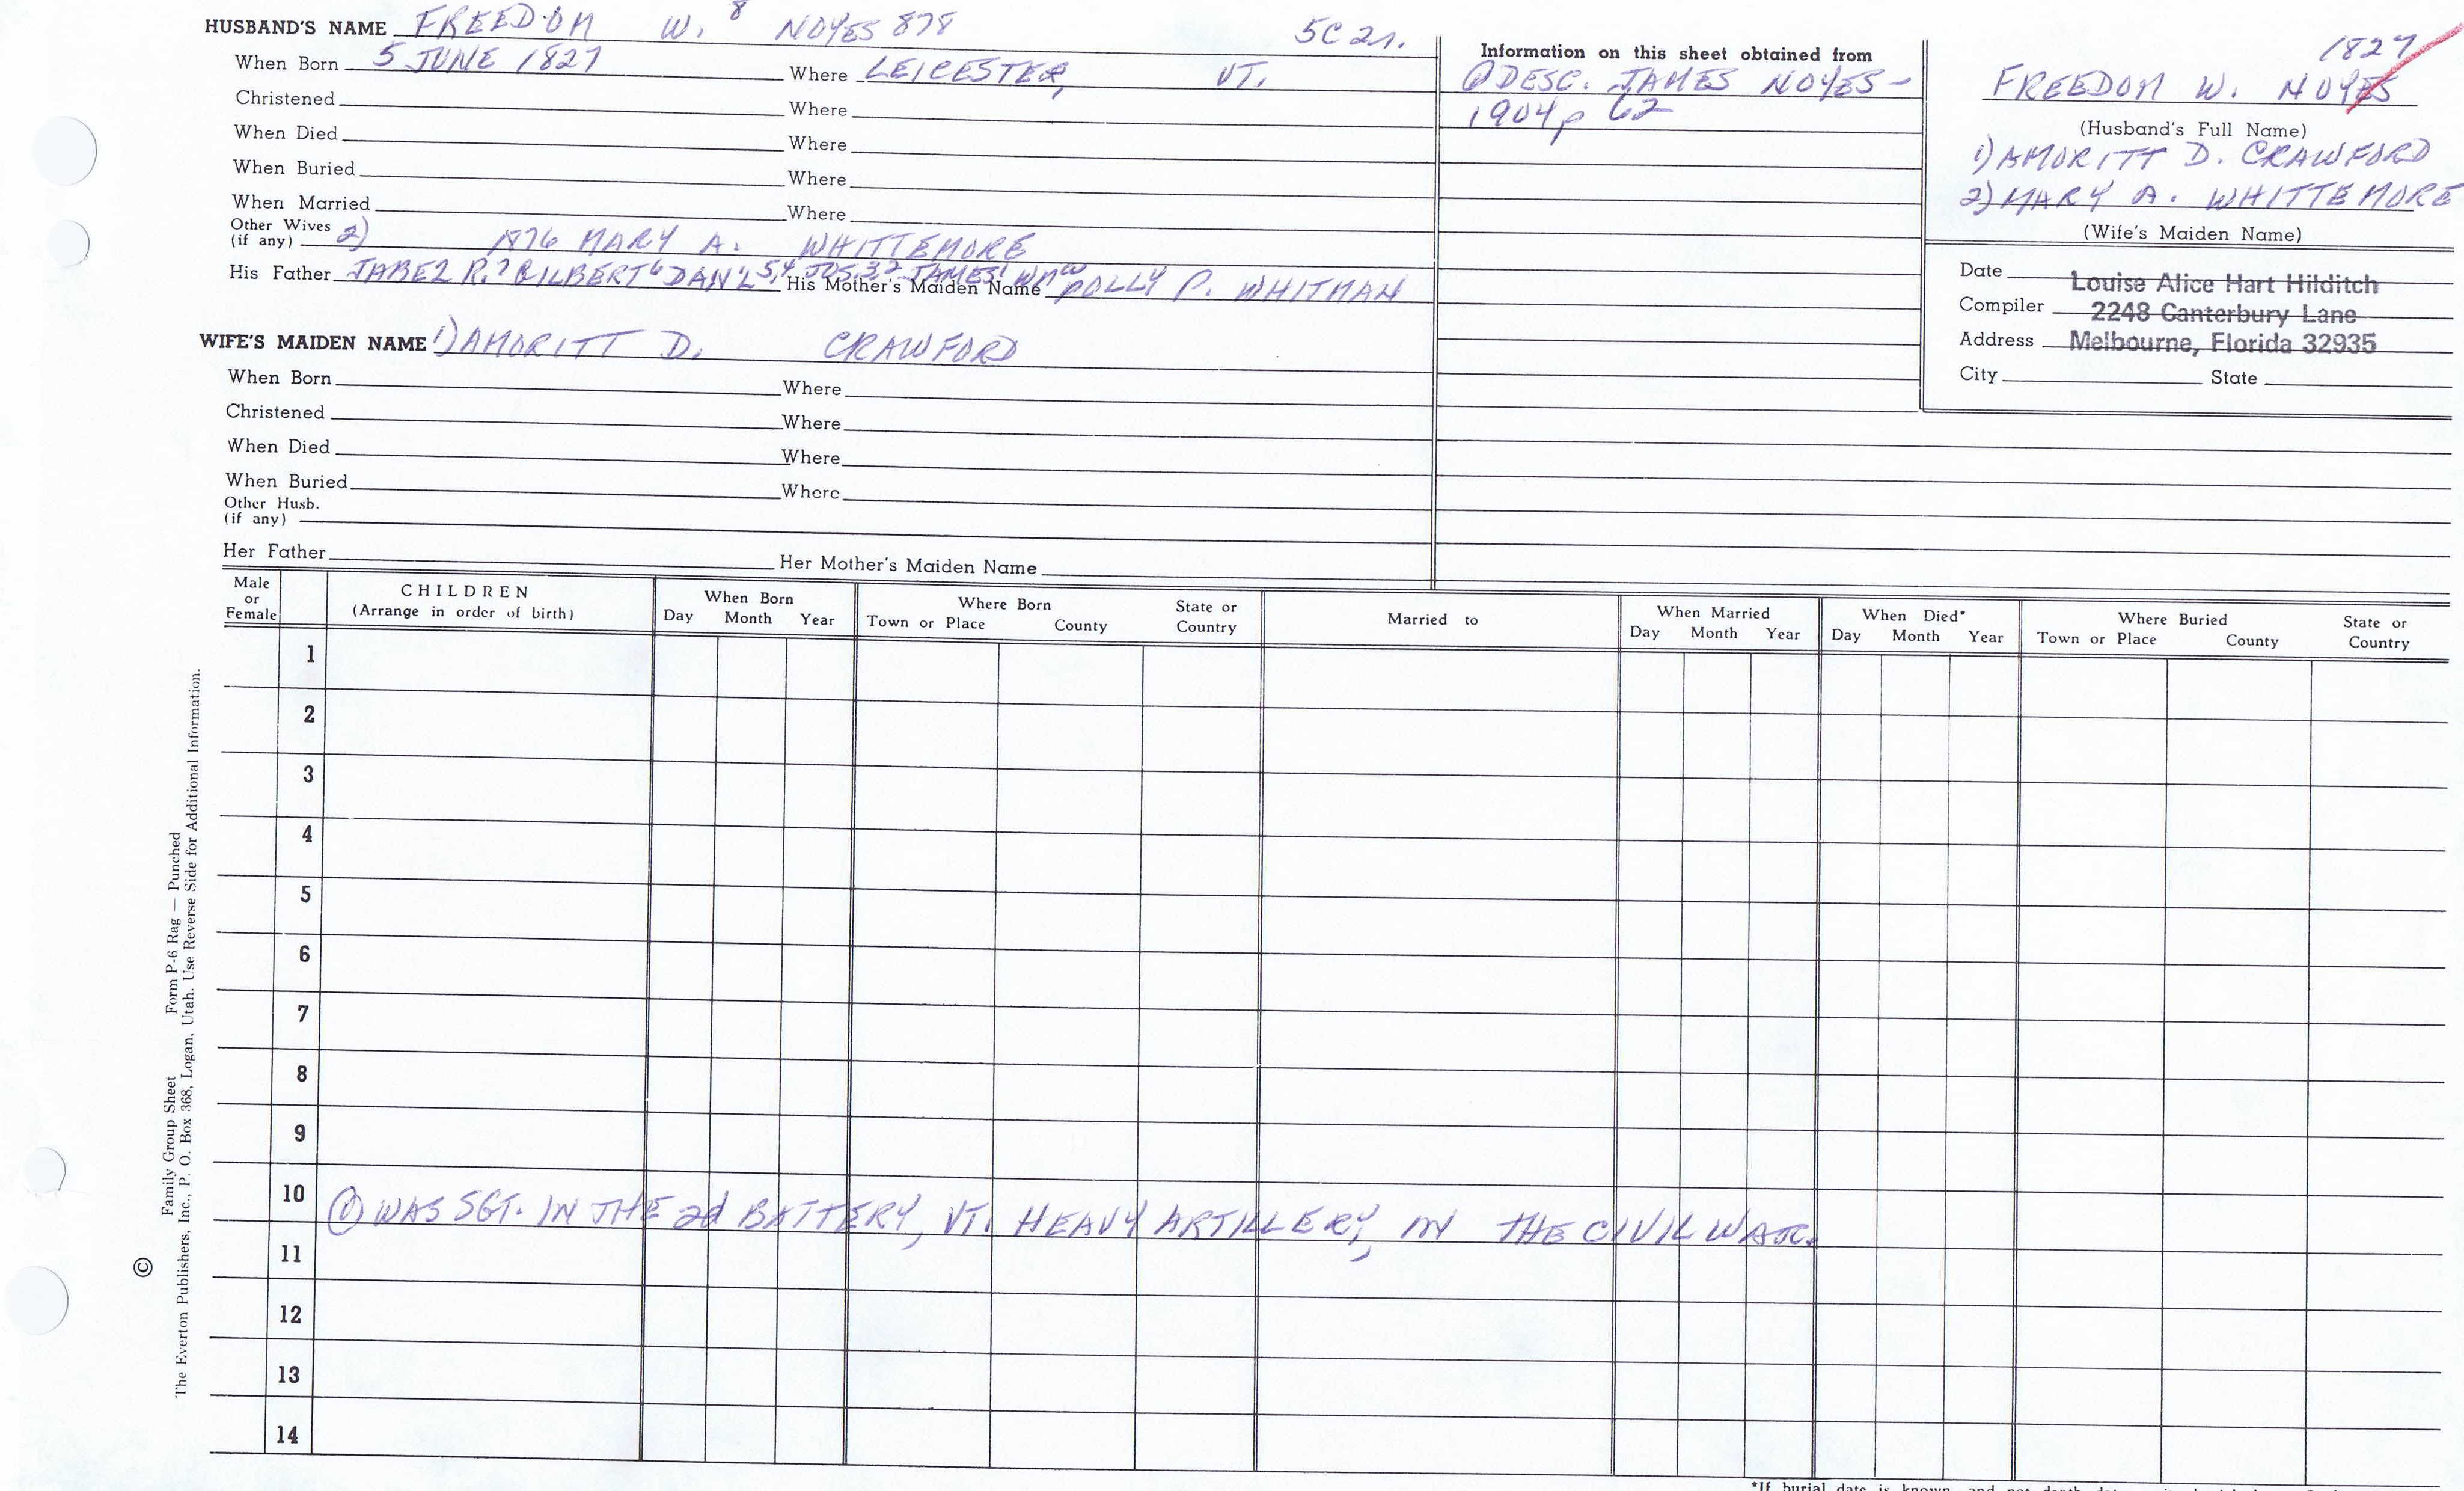 HUSBAND'S NAME FREEDOM W. 8 NOYES 878 5C2r.
When Born 5 JUNE 1827 Where LEICESTER, VT.
Christened Where
When Died Where
When Buried Where
When Married Where
Other Wives (if any) 2) 1876 MARY A. WHITTEMORE
His Father JABEZ R.7 GILBERT6 DAN'L5,4 JOS.3,2 JAMES1 Wm His Mother's Maiden Name POLLY P. WHITMAN
WIFE'S MAIDEN NAME 1) AMORITT D. CRAWFORD
When Born Where
Christened Where
When Died Where
When Buried Where
Other Husb. (if any)
Her Father Her Mother's Maiden Name
Information on this sheet obtained from
① DESC. JAMES NOYES -
1904 p 62
1827
FREEDOM W. NOYES
(Husband's Full Name)
1) AMORITT D. CRAWFORD
2) MARY A. WHITTEMORE
(Wife's Maiden Name)
Date Louise Alice Hart Hilditch
Compiler 2248 Canterbury Lane
Address Melbourne, Florida 32935
City State
Male or Female CHILDREN (Arrange in order of birth) When Born Day Month Year Where Born Town or Place County State or Country Married to When Married Day Month Year When Died* Day Month Year Where Buried Town or Place County State or Country
1
2
3
4
5
6
7
8
9
10 ① WAS SGT. IN THE 2d BATTERY, VT. HEAVY ARTILLERY, IN THE CIVIL WAR.
11
12
13
14
Family Group Sheet Form P-6 Rag — Punched
© The Everton Publishers, Inc., P. O. Box 368, Logan, Utah. Use Reverse Side for Additional Information.